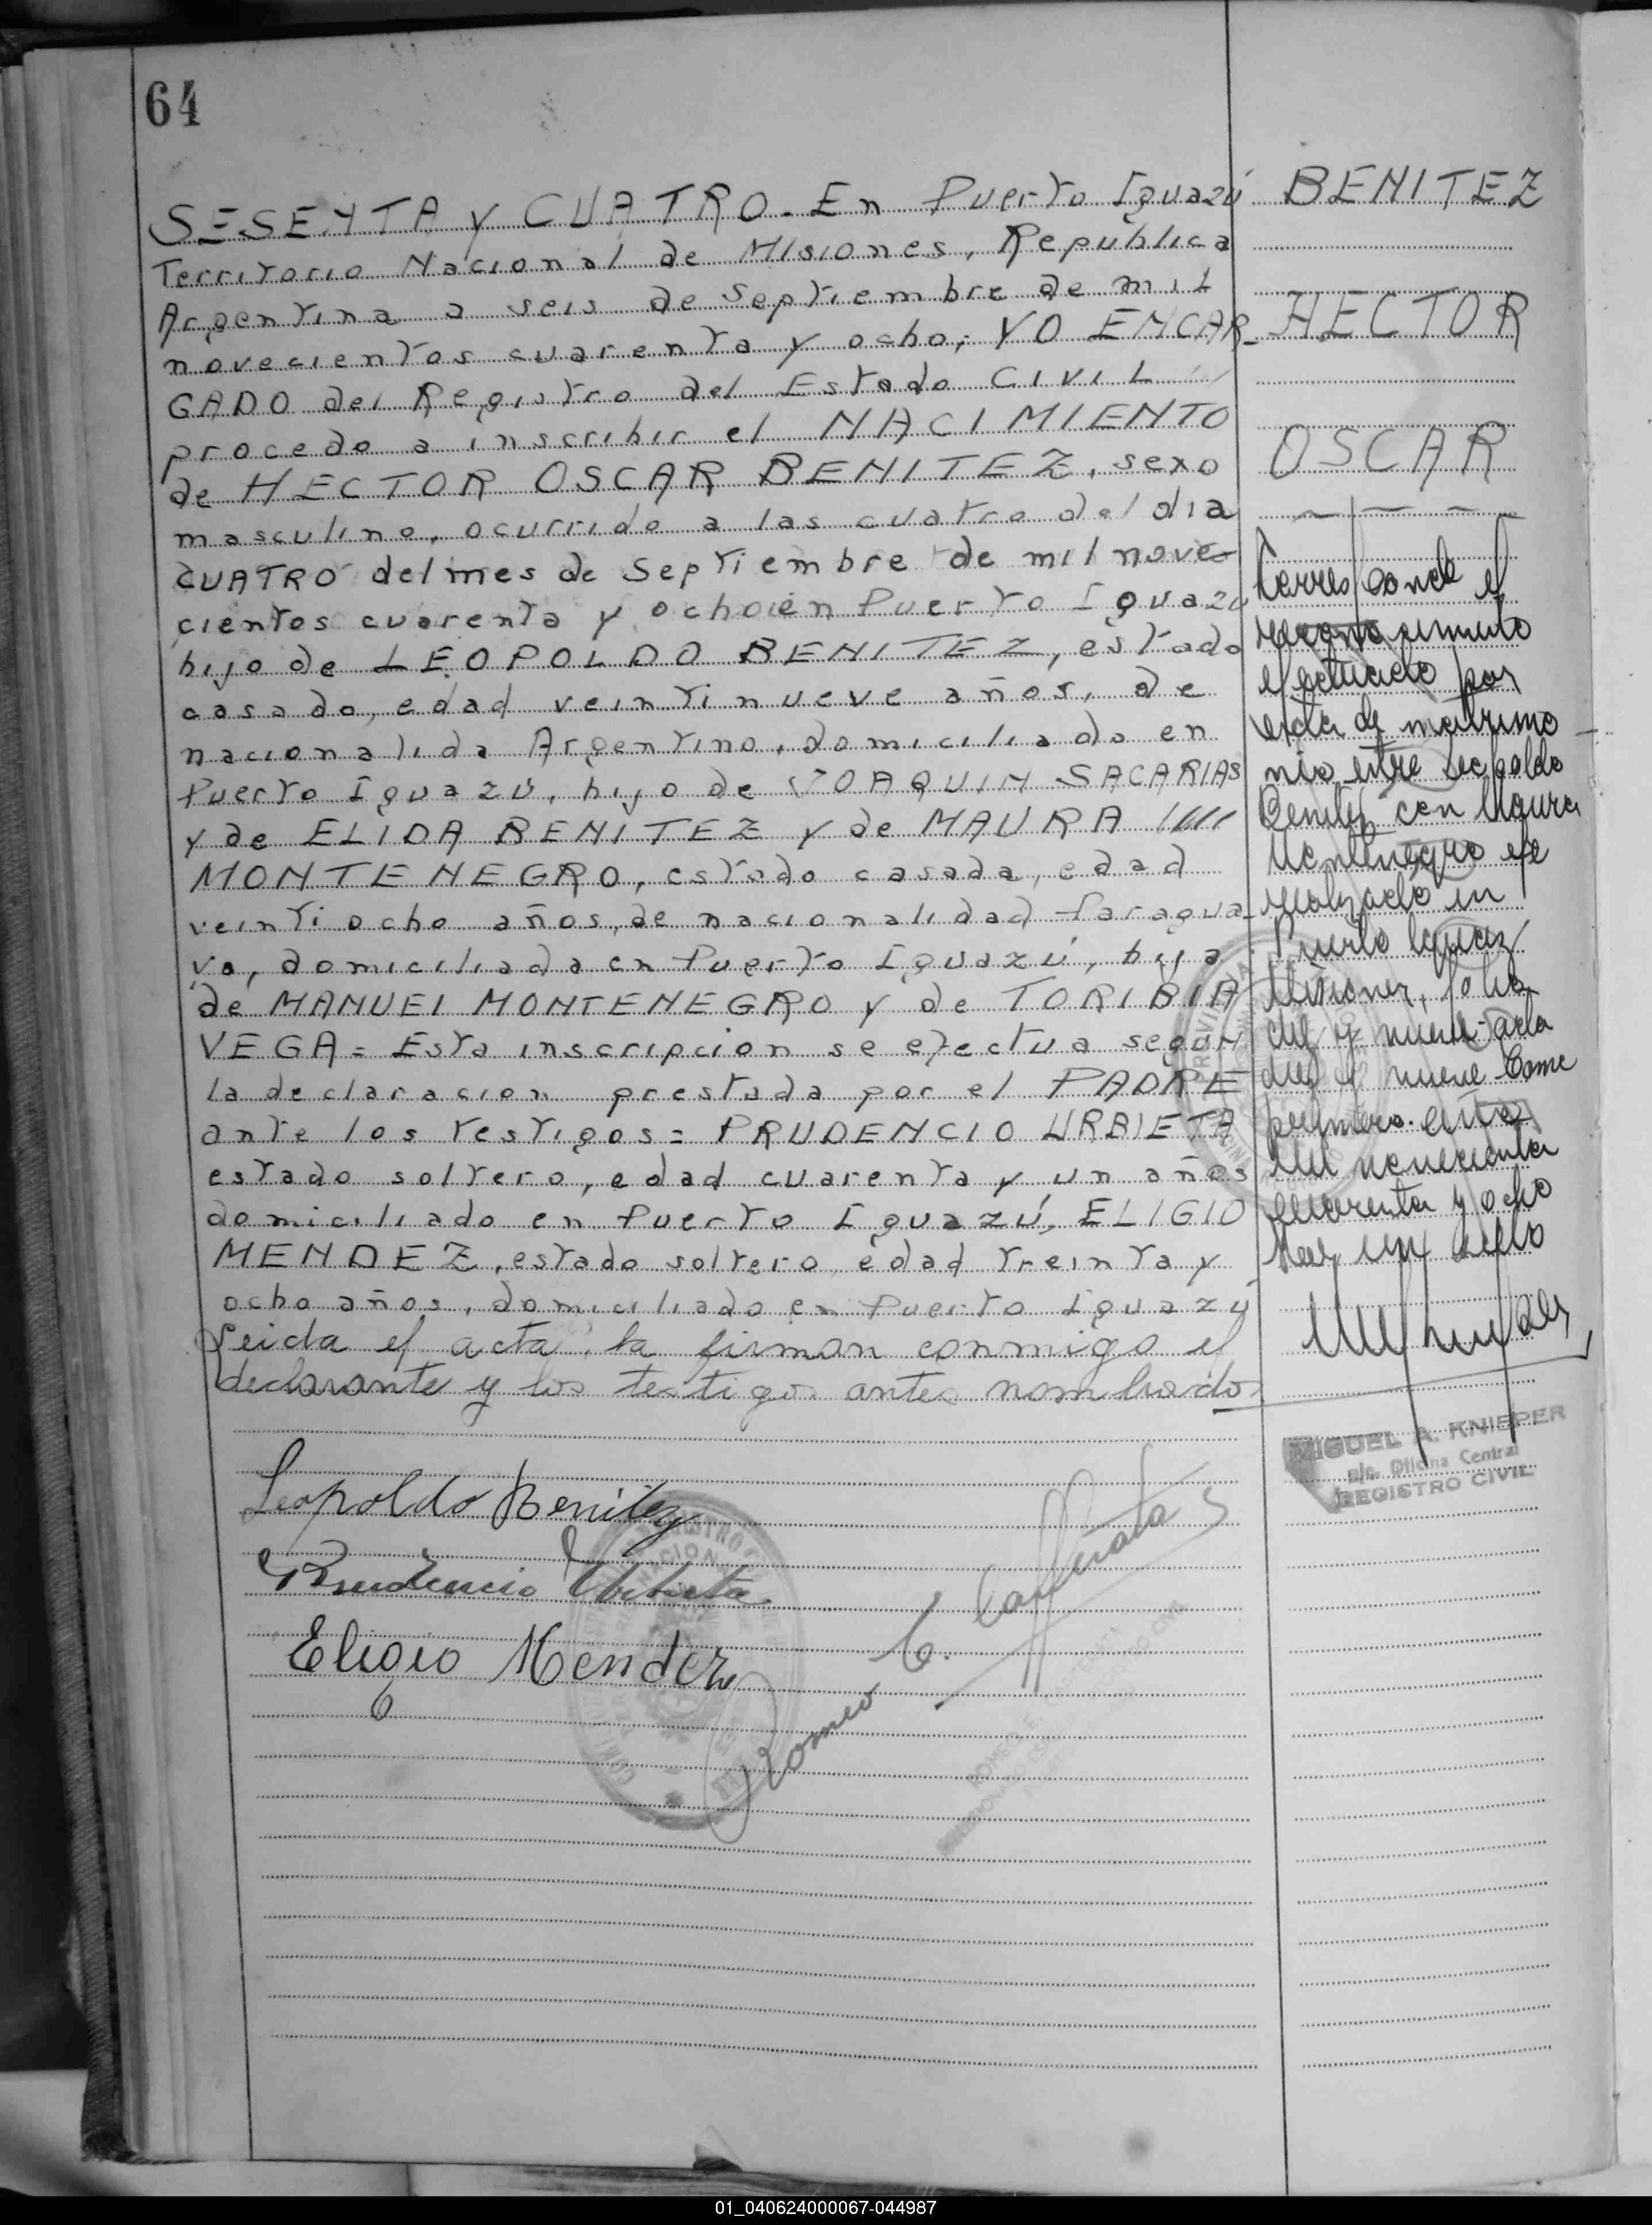 64
SESENTA y CUATRO. En Puerto Iguazú
Territorio Nacional de Misiones, República
Argentina a seis de Septiembre de mil
novecientos cuarenta y ocho; YO ENCAR-
GADO del Registro del Estado Civil
procedo a inscribir el NACIMIENTO
de HECTOR OSCAR BENITEZ, sexo
masculino, ocurrido a las cuatro del dia
CUATRO del mes de Septiembre de mil nove-
cientos cuarenta y ocho en Puerto Iguazú
hijo de LEOPOLDO BENITEZ, estado
casado, edad veintinueve años, de
nacionalida Argentino, domiciliado en
Puerto Iguazú, hijo de JOAQUIN SACARIAS
y de ELIDA BENITEZ y de MAURA ////
MONTENEGRO, estado casada, edad
veintiocho años, de nacionalidad Paragua-
ya, domiciliada en Puerto Iguazú, hija
de MANUEL MONTENEGRO y de TORIBIA
VEGA = Esta inscripcion se efectua según
la declaracion prestada por el PADRE
ante los testigos = PRUDENCIO URBIETA
estado soltero, edad cuarenta y un años
domiciliado en Puerto Iguazú, ELIGIO
MENDEZ, estado soltero, edad treinta y
ocho años, domiciliado en Puerto Iguazú
Leida el acta, la firman conmigo el
declarante y los testigos antes nombrados
Leopoldo Benitez
Prudencio Urbieta
Eligio Mendez
Romeo C.
BENITEZ
HECTOR
OSCAR
Corresponde el
reconocimiento
efectuado por
acta de matrimo
nio entre Leopoldo
Benitez con Maura
Montenegro
realizado en
Puerto Iguazú
Misiones, folio
diez y nueve acta
diez y nueve tomo
primero año
mil novecientos
cuarenta y ocho
Hay un sello
MIGUEL A. KNIEPER
a/c. Oficina Central
REGISTRO CIVIL
01_040624000067-044987